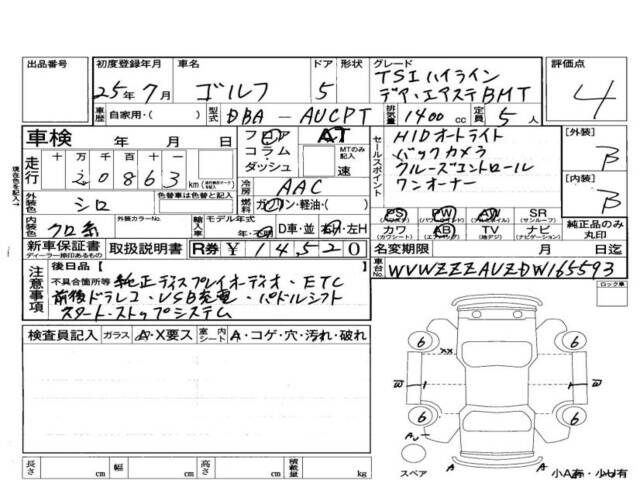 出品番号 初度登録年月 車名 ドア 形状 グレード 評価点
25年7月 ゴルフ 5 TSIハイライン
デザ・エアステBMT 4
車歴 自家用・( ) 型式 DBA-AUCPT 排気量 1400cc 定員 5人
車検 年 月 日 フロア AT
コラム・ MTのみ記入
ダッシュ 速
走行 十 万 千 百 十 一
20863 km
セールスポイント HIDオートライト
バックカメラ
クルーズコントロール
ワンオーナー
[外装] B
[内装] B
冷房 AAC
燃料 ガソリン・軽油・( )
外装色 シロ 色替車は色替と記入
内装色 クロ系 外装カラーNo. 輸入車 モデル年式 年 D車・並 右H・左H
PS PW AW SR
(パワステ) (パワーウィンド) (アルミホイル) (サンルーフ)
カワ AB TV ナビ
(カワシート) (エアバッグ) (地デジ) (ナビゲーション)
純正品のみ丸印
新車保証書 取扱説明書 R券 ¥14,520
ディーラー捺印あるもの
名変期限 月 日迄
車台No. WVWZZZAUZDW165593
ロック車
注意事項 後日品[ ]
不具合箇所等 純正ディスプレイオーディオ・ETC
前後ドラレコ・USB充電・パドルシフト
スタート・ストップシステム
検査員記入 ガラス A・X要ス 室内シート A・コゲ・穴・汚れ・破れ
6 XX 6
W 1 1 W
6 6
AU
スペア A A 小A有・小U有
長さ cm 幅 cm 高さ cm 積載量 kg